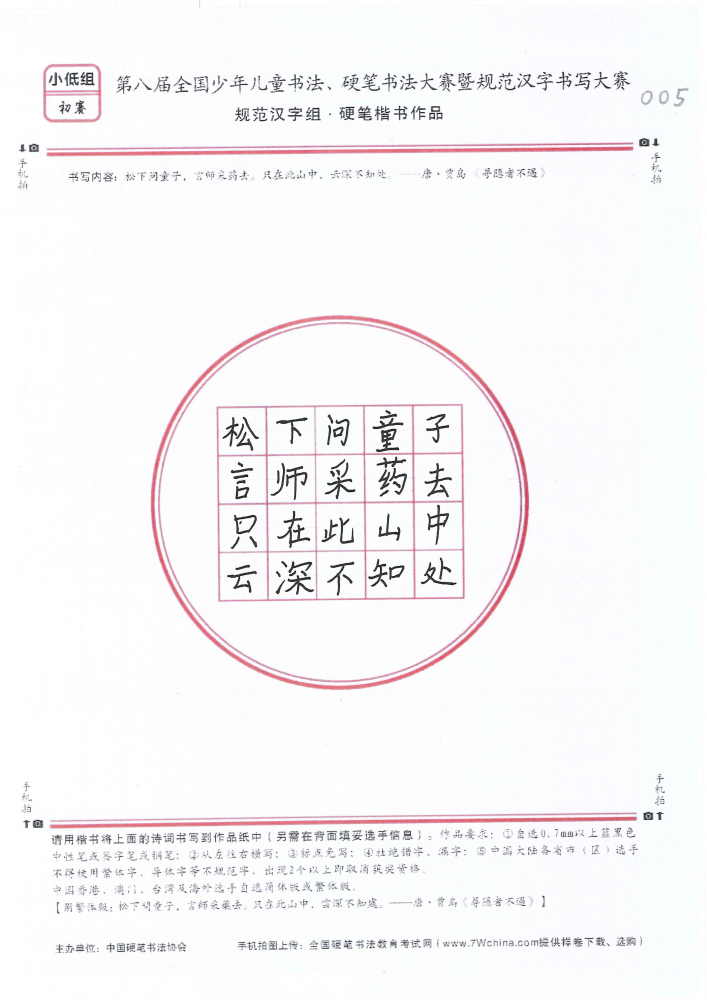 小低组
初赛
第八届全国少年儿童书法、硬笔书法大赛暨规范汉字书写大赛
005
规范汉字组·硬笔楷书作品
手机拍
手机拍
书写内容：松下问童子，言师采药去。只在此山中，云深不知处。——唐·贾岛《寻隐者不遇》
松下问童子
言师采药去
只在此山中
云深不知处
手机拍
手机拍
请用楷书将上面的诗词书写到作品纸中（另需在背面填妥选手信息）。作品要求：①自选0.7mm以上蓝黑色
中性笔或签字笔或钢笔；②从左往右横写；③标点免写；④杜绝错字、漏字；⑤中国大陆各省市（区）选手
不得使用繁体字、异体字等不规范字，出现2个以上即取消获奖资格。
中国香港、澳门、台湾及海外选手自选简体版或繁体版。
【附繁体版：松下問童子，言師采藥去。只在此山中，雲深不知處。——唐·賈島《尋隱者不遇》】
主办单位：中国硬笔书法协会
手机拍图上传：全国硬笔书法教育考试网（www.7Wchina.com提供样卷下载、选购）